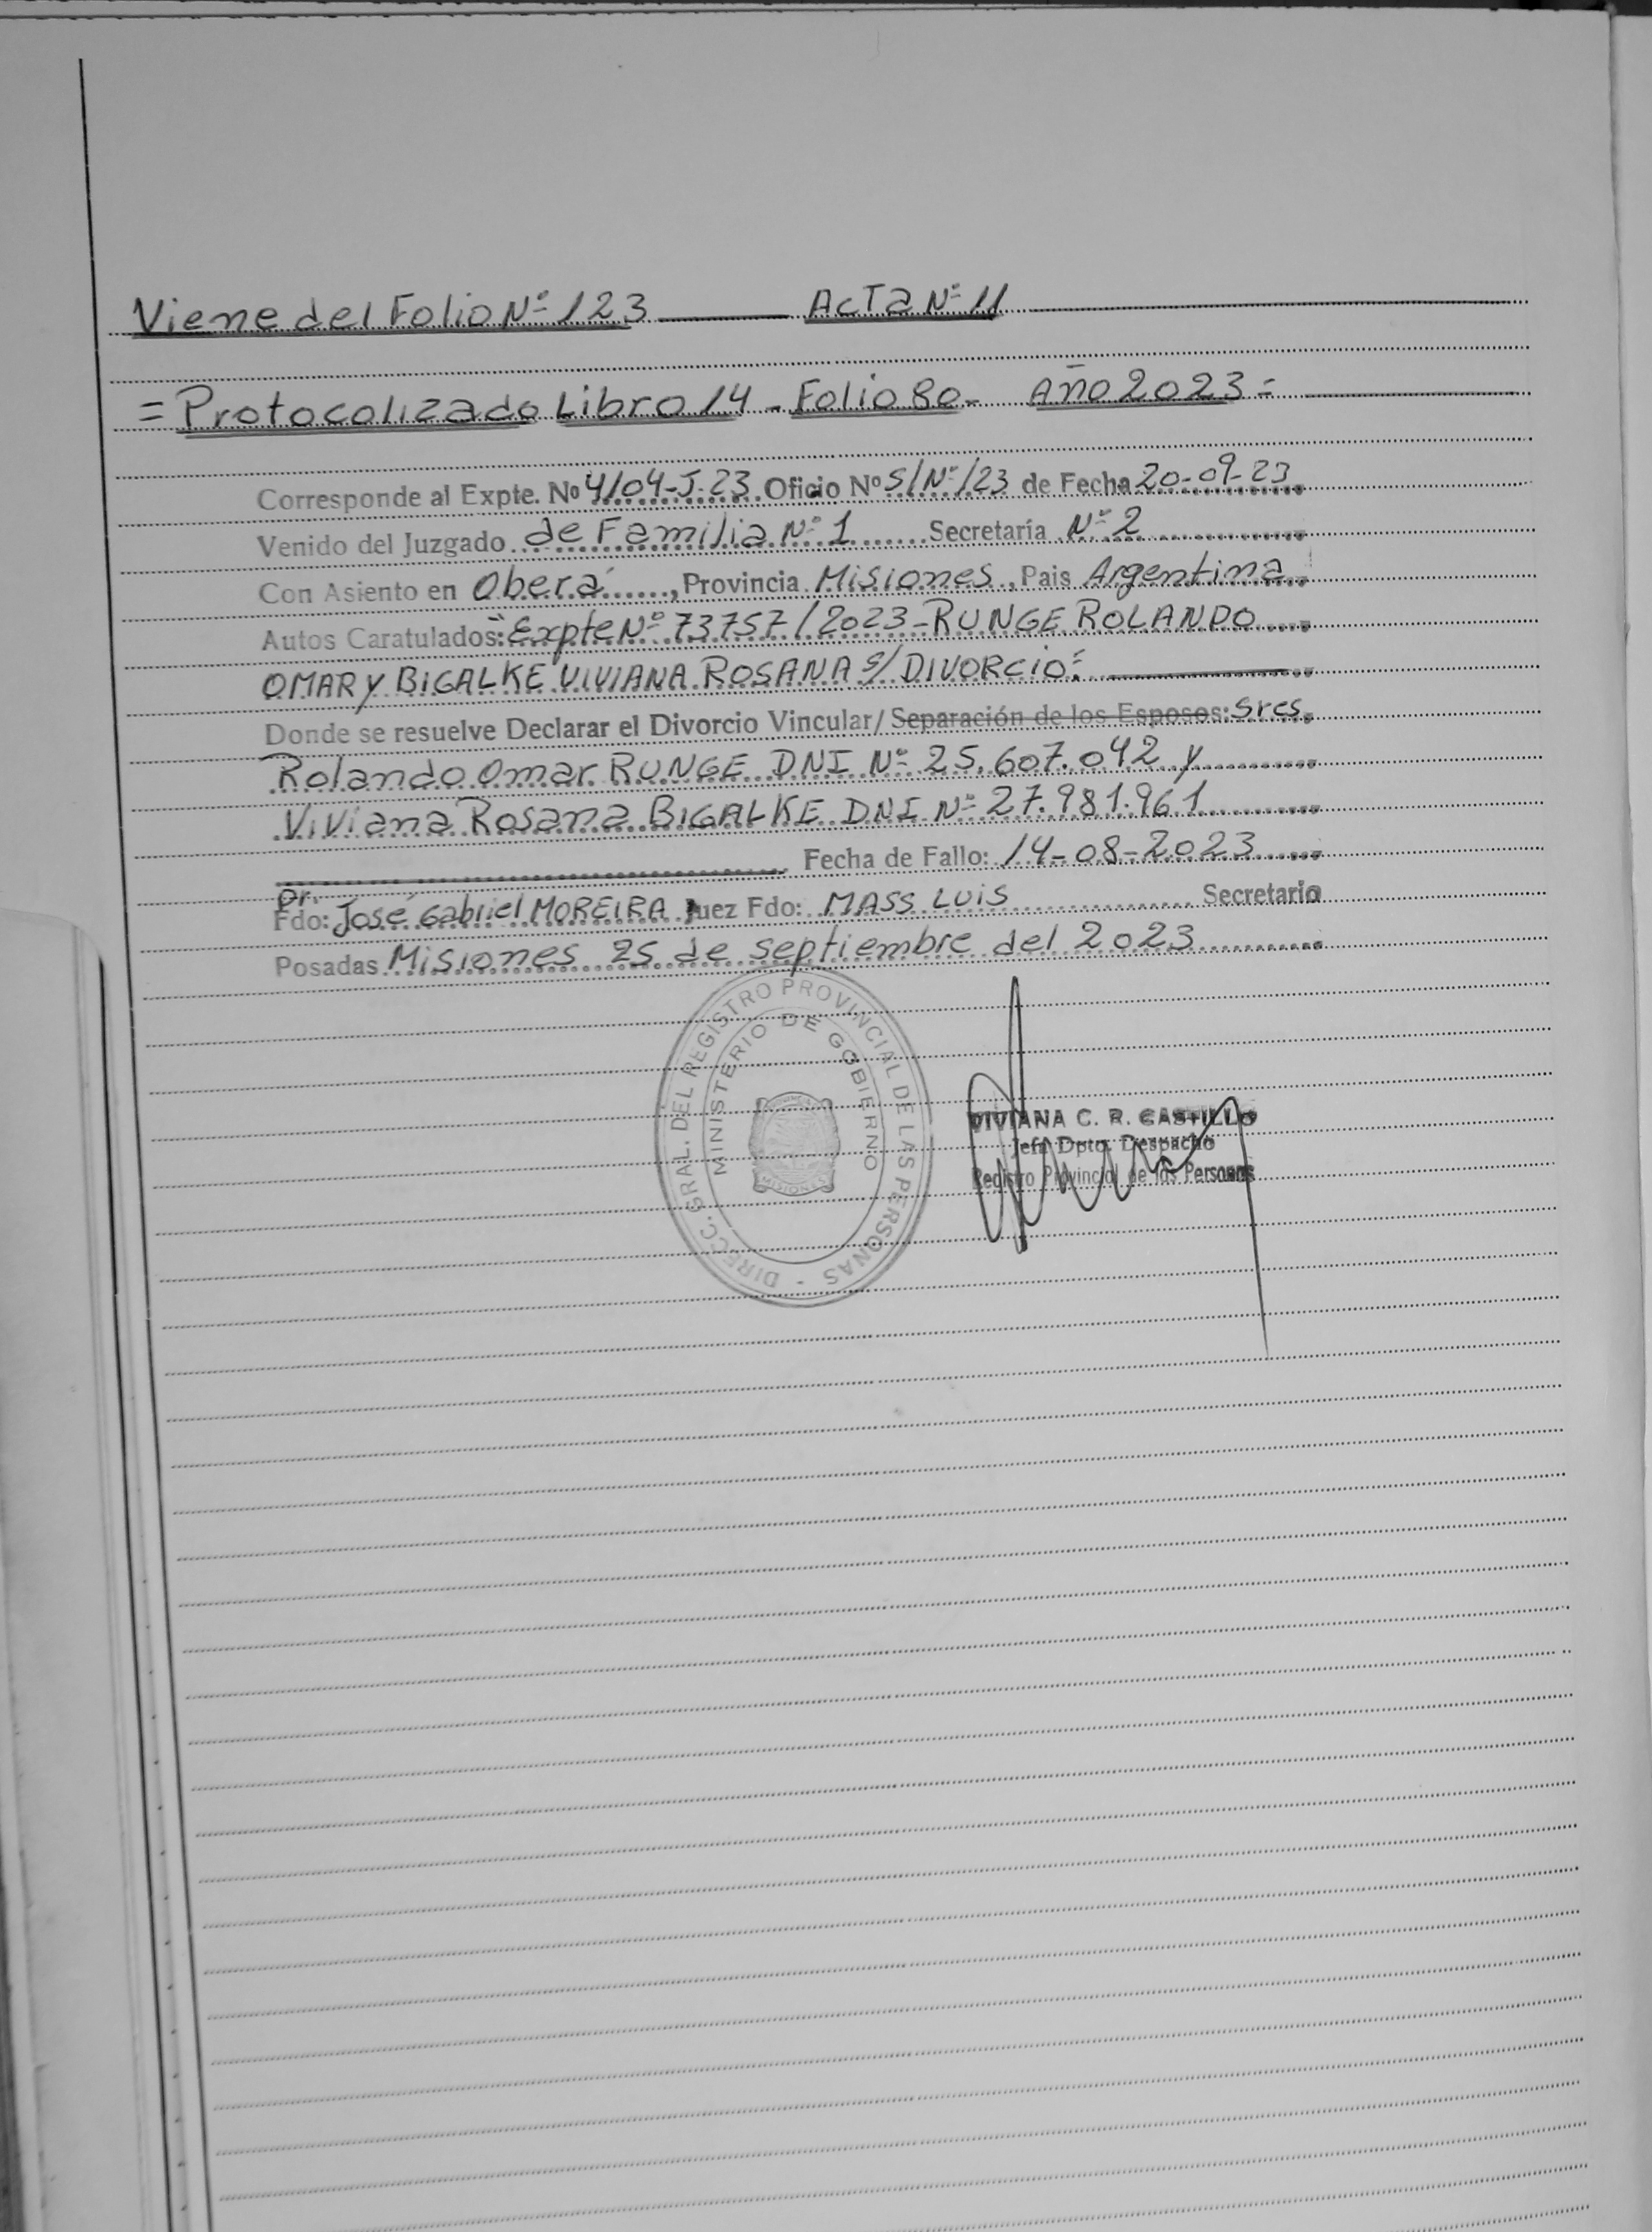 Viene del Folio Nº 123 Acta Nº 11
= Protocolizado Libro 14 - Folio 80 - Año 2023 =
Corresponde al Expte. Nº 4104-J-23 Oficio Nº S/Nº/23 de Fecha 20-09-23
Venido del Juzgado de Familia Nº 1 Secretaría Nº 2
Con Asiento en Oberá, Provincia Misiones, Pais Argentina
Autos Caratulados: "Expte Nº 73757/2023 - RUNGE ROLANDO
OMAR Y BIGALKE VIVIANA ROSANA S/ DIVORCIO"
Donde se resuelve Declarar el Divorcio Vincular/ Separación de los Esposos: Sres.
Rolando Omar RUNGE DNI Nº 25.607.042 y
Viviana Rosana BIGALKE DNI Nº 27.981.961
Fecha de Fallo: 14-08-2023
Dr.
Fdo: José Gabriel MOREIRA Juez Fdo: MASS LUIS Secretario
Posadas Misiones 25 de septiembre del 2023
DIRECC. GRAL. DEL REGISTRO PROVINCIAL DE LAS PERSONAS -
MINISTERIO DE GOBIERNO
MISIONES
VIVIANA C. R. CASTILLO
Jefa Dpto. Despacho
Registro Provincial de las Personas